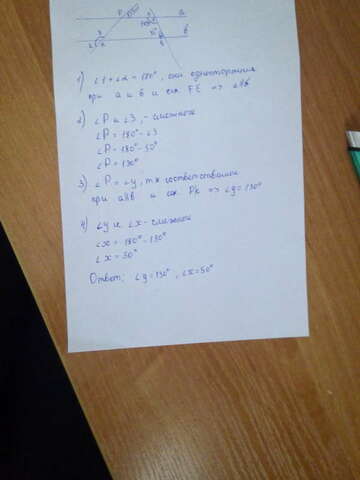 a
b
1) ∠1+∠2=180°, они односторонние
при a и b и сек FE => a||b
2) ∠P и ∠3, - смежные
∠P = 180° - ∠3
∠P = 180° - 50°
∠P = 130°
3) ∠P = ∠y, т.к соответственные
при a||b и сек PK => ∠y = 130°
4) ∠y и ∠x - смежные
∠x = 180° - 130°
∠x = 50°
Ответ: ∠y = 130°, ∠x = 50°